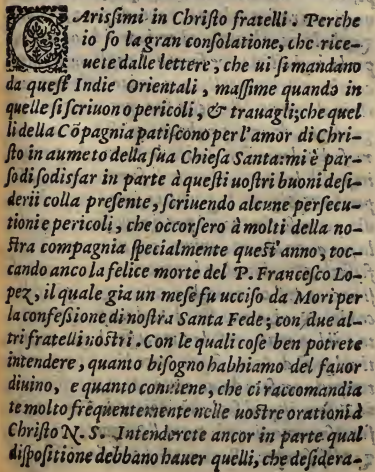 CArissimi in Christo fratelli. Perche
io so la gran consolatione, che rice-
uete dalle lettere, che ui si mandano
da quest' Indie Orientali, massime quando in
quelle si scriuono pericoli, & trauagli, che quel
li della Cõpagnia patiscono per l'amor di Chri-
sto in aumẽto della sua Chiesa Santa: mi è par-
so di sodisfar in parte à questi uostri buoni desi-
derii colla presente, scriuendo alcune persecu-
tioni e pericoli, che occorsero à molti della no-
stra compagnia specialmente quest' anno, toc-
cando anco la felice morte del P. Francesco Lo-
pez, il quale gia un mese fu ucciso da Mori per
la confessione di nostra Santa Fede; con due al-
tri fratelli nostri. Con le quali cose ben potrete
intendere, quanto bisogno habbiamo del fauor
diuino, e quanto conuiene, che ci raccomandia
te molto frequentemente nelle uostre orationi à
Christo N. S. Intenderete ancor in parte qual
dispositione debbano hauer quelli, che desidera-